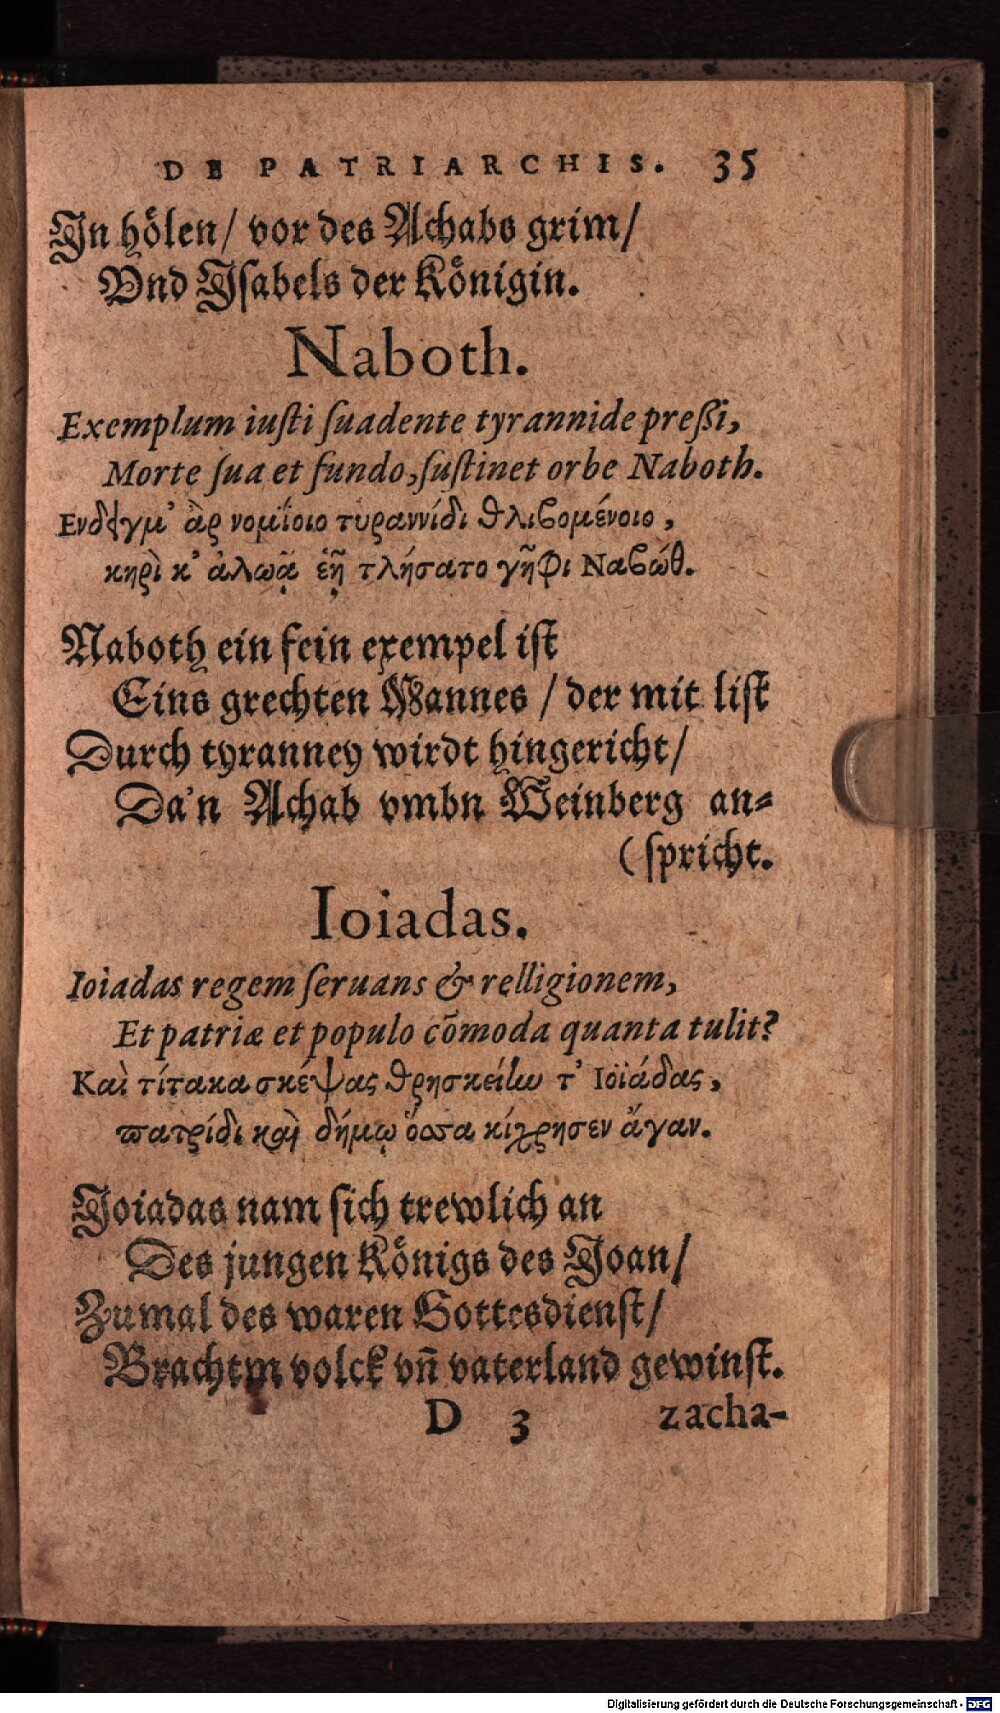 DE PATRIARCHIS. 35
Jn hoͤlen/ vor des Achabs grim/
Vnd Jſabels der Koͤnigin.
Naboth.
Exemplum iuſti ſuadente tyrannide preßi,
Morte ſua et fundo, ſuſtinet orbe Naboth.
ἂρ νομίοιο τυραννίδι θλιβομένοιο,
κηρὶ κ' ἀλωᾷ ἑῇ τλήσατο γῆφι Ναβώθ.
Naboth ein fein exempel iſt
Eins grechten Mannes / der mit liſt
Durch tyranney wirdt hingericht/
Da'n Achab vmbn Weinberg an⸗
(ſpricht.
Ioiadas.
Ioiadas regem ſeruans & relligionem,
Et patriæ et populo cōmoda quanta tulit?
Καὶ τίτακα σκέψας θρησκείων τ' Ιοϊάδας,
πατρίδι καὶ δήμῳ ὅσσα κίχρησεν ἄγαν.
Joiadas nam ſich trewlich an
Des jungen Koͤnigs des Joan/
Zumal des waren Gottesdienſt/
Brachtm volck vn̄ vaterland gewinſt.
D 3 zacha-
Digitalisierung gefördert durch die Deutsche Forschungsgemeinschaft - DFG